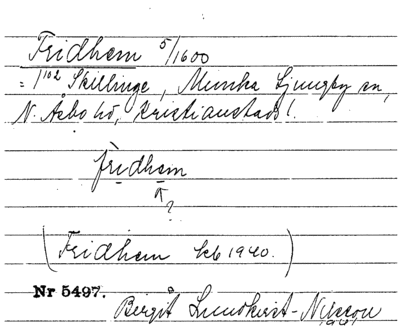 Fridhem 5/1600
= 1¹⁰² Skillinge, Munka Ljungby sn,
N. Åsbo hd, Kristianstads l.
frìdhem
?
(Fridhem kb 1940.)
Nr 5497.
Birgit Lundkvist-Nilsson